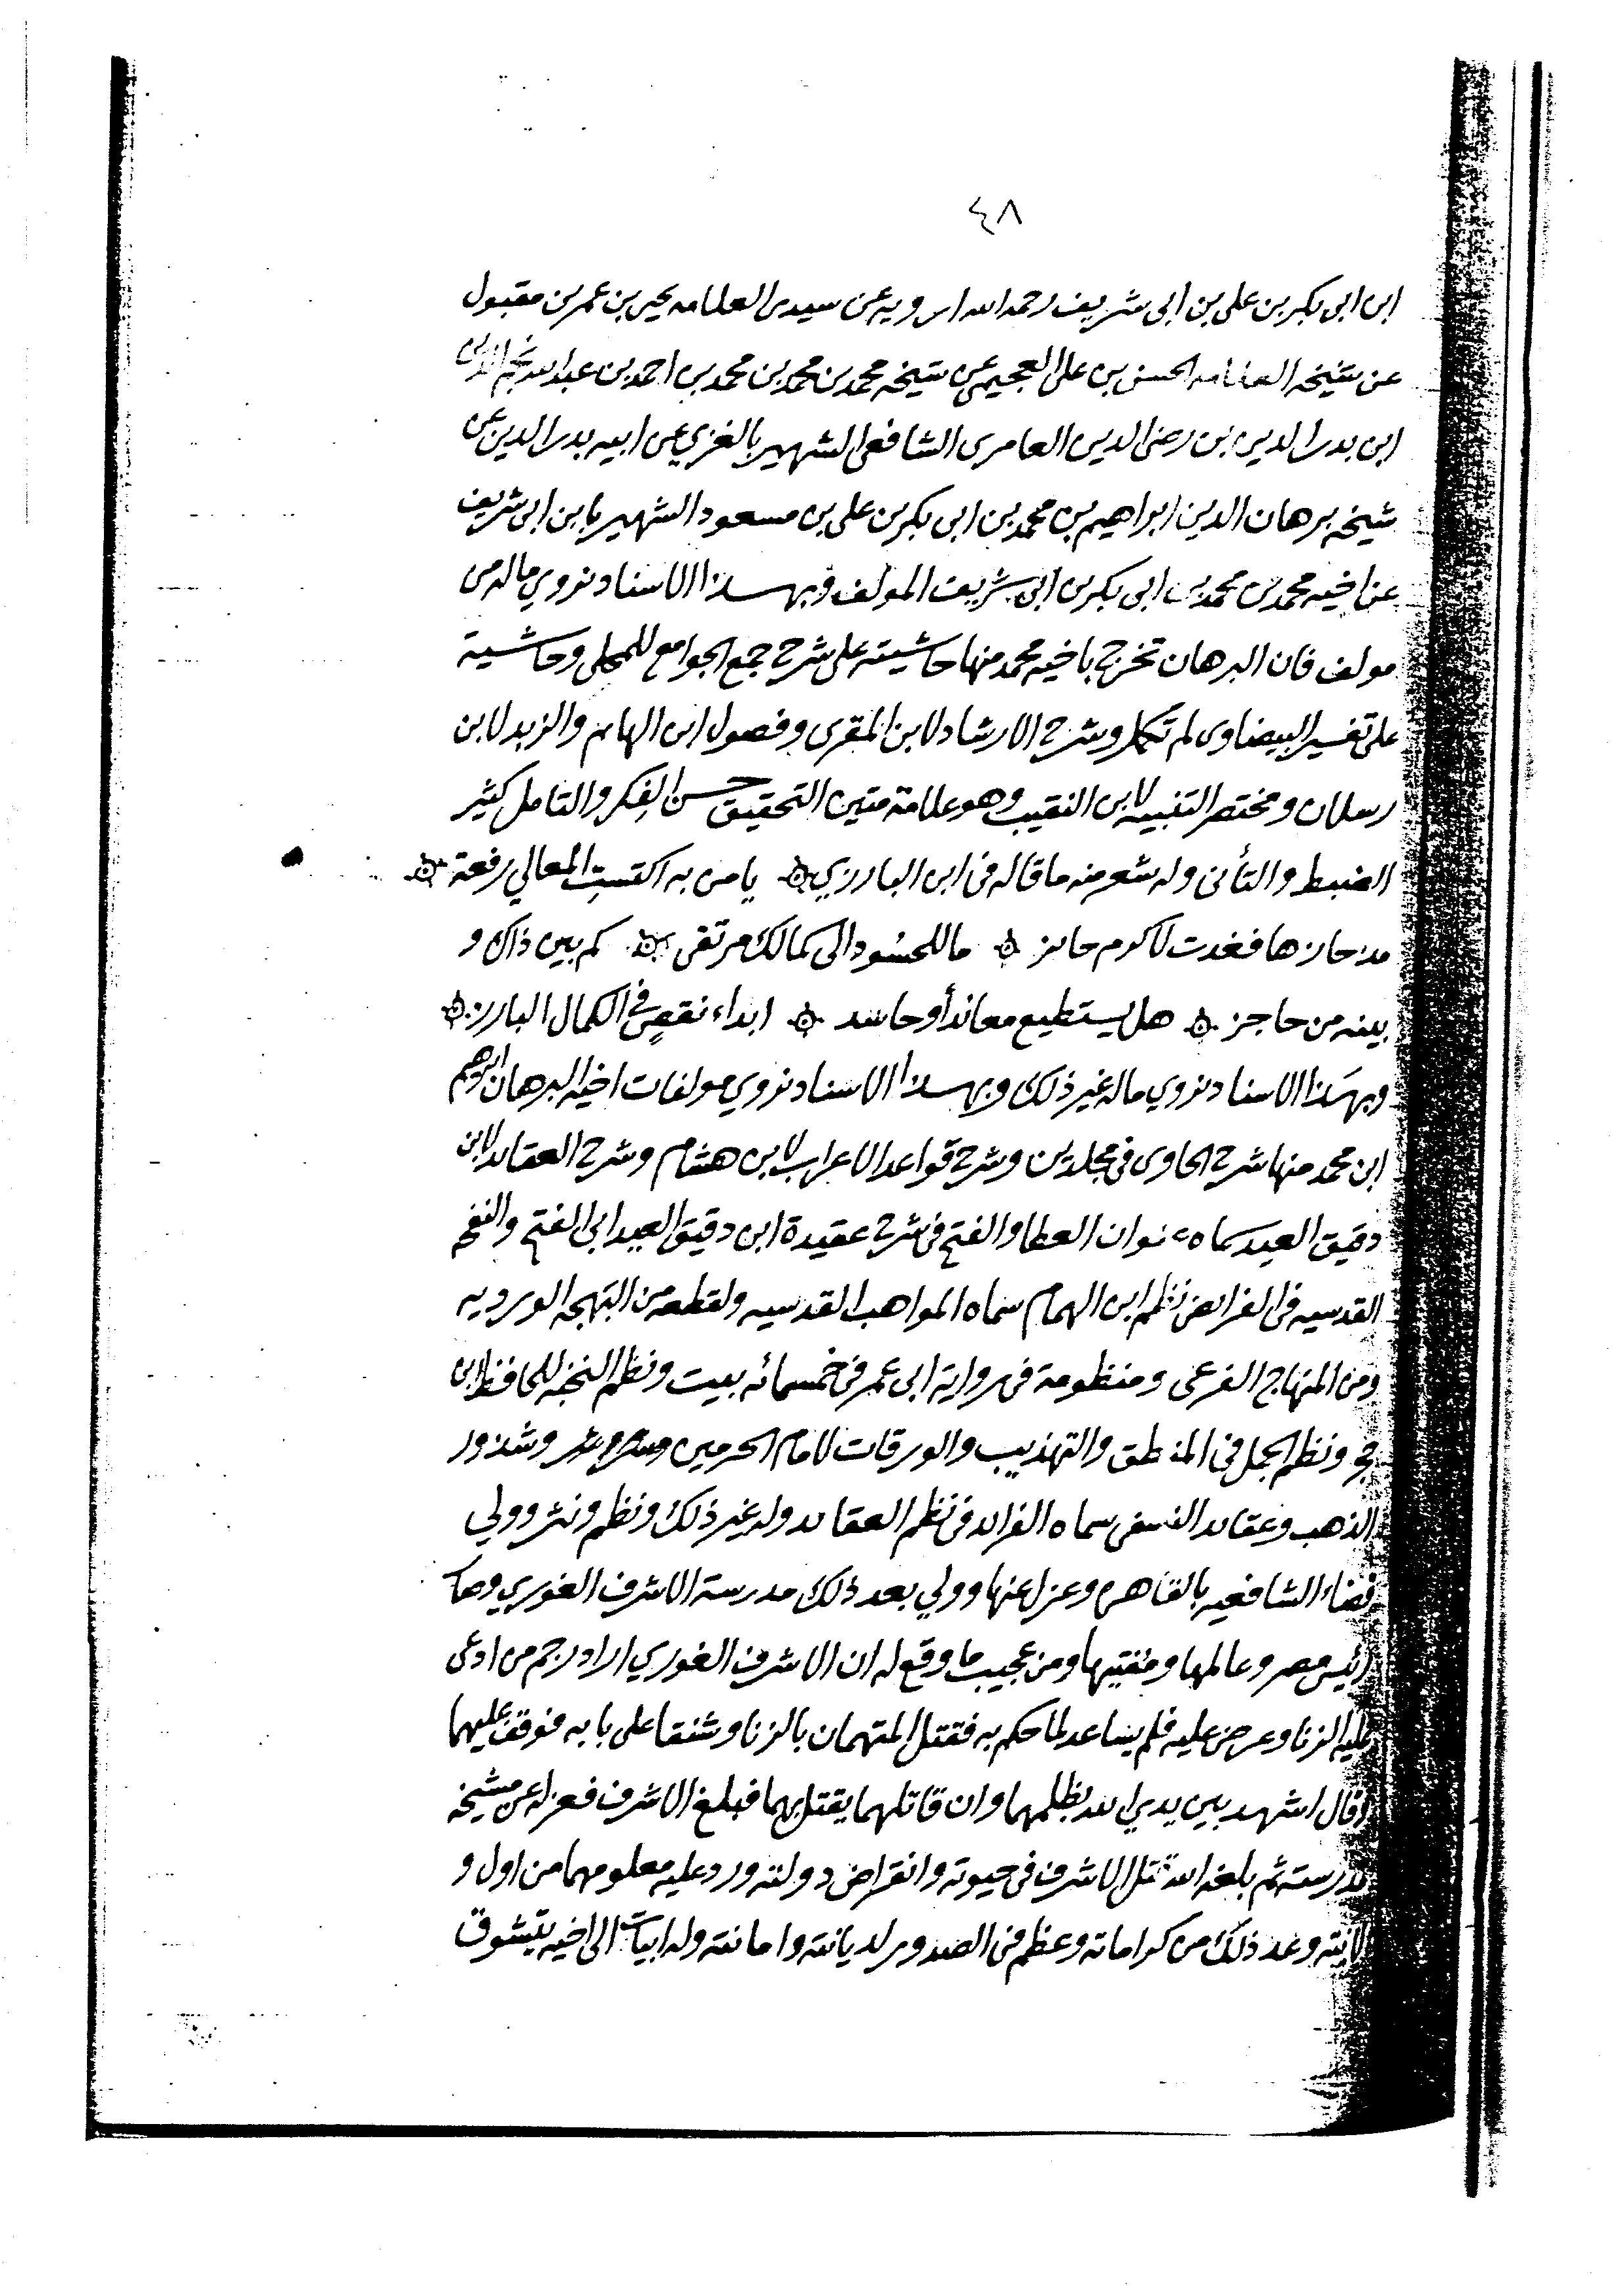 ٤٨
ابن ابى بكر بن على بن ابى شريف رحمه الله ارويه عن سيدى العلامه يحيى بن عمر بن مقبول
عن شيخه العلامه الحسن بن على العجيمى عن شيخه محمد بن محمد بن محمد بن احمد بن عبد الله نجم الدين
ابن بدر الدين بن رضى الدين العامرى الشافعى الشهير بالغزي عن ابيه بدر الدين عن
شيخه برهان الدين ابراهيم بن محمد بن ابى بكر بن على بن مسعود الشهير بابن ابى شريف
عن اخيه محمد بن محمد بن ابى بكر بن ابى شريف المولف وبهذا الاسناد نروي ماله من
مولف فان البرهان تخرج باخيه محمد منها حاشيته على شرح جمع الجوامع للمحلى وحاشية
على تفسير البيضاوى لم تكمل وشرح الارشاد لابن المقرى وفصول ابن الهايم والزبد لابن
رسلان ومختصر التنبيه لابن النقيب وهو علامة متين التحقيق حسن الفِكر والتامل كثير
الضبط والتأنى وله شعر منه ما قاله فى ابن البارزي يا من به اكتستِ المعالي رفعة
مذ حازها فغدت لاكرم حائز ما للحسُود الى كمالك مرتقى كم بين ذاك و
بينه من حاجز هل يستطيع معاند أو حاسد ابداء نقصٍ فى الكمال البارز
وبهَذا الاسناد نروي ماله غير ذلك وبهذا الاسناد نروي مولفات اخيه البرهان ابراهيم
ابن محمد منها شرح الحاوى فى مجلدين وشرح قواعد الاعراب لابن هشام وشرح العقايد لابن
دقيق العيد سماه عنوان العطا والفتح فى شرح عقيدة ابن دقيق العيد ابى الفتح والنفح
القدسيه فى الفرايض نظم ابن الهمام سماه المواهب القدسيه ولقطعه من البهجه الورديه
ومن المنهاج الفرعى ومنظومة فى رواية ابى عمر فى خمسمائه بيت ونظم النخبه للحافظ ابن
حجر ونظم الجمل فى المنطق والتهذيب والورقات لامام الحرمين وشذور
الذهب وعقايد النسفى سماه الفرايد فى نظم العقايد وله غير ذلك ونظم ونثر وولي
قضاء الشافعيه بالقاهره وعزل عنها وولي بعد ذلك مدرسة الاشرف الغوري وصار
رئيس مصر وعالمها ومفتيها ومن عجيب ما وقع له ان الاشرف الغوري اراد رجم من ادعى
عليه الزنا وعرض عليه فلم يساعد لما حكم به فقتل المتهمان بالزنا وشنقا على بابه فوقف عليهما
وقال اشهد بين يدي الله بظلمهما وان قاتلهما يقتل بهما فبلغ الاشرف فعزله عن مشيخه
مدرسته ثم بلغه الله قتل الاشرف فى حيوته وانقراض دولته ورد عليه معلومهما من اول و
لايته وعد ذلك من كراماته وعظم فى الصدور لديانته وامانته وله ابيات الى اخيه يتشوق